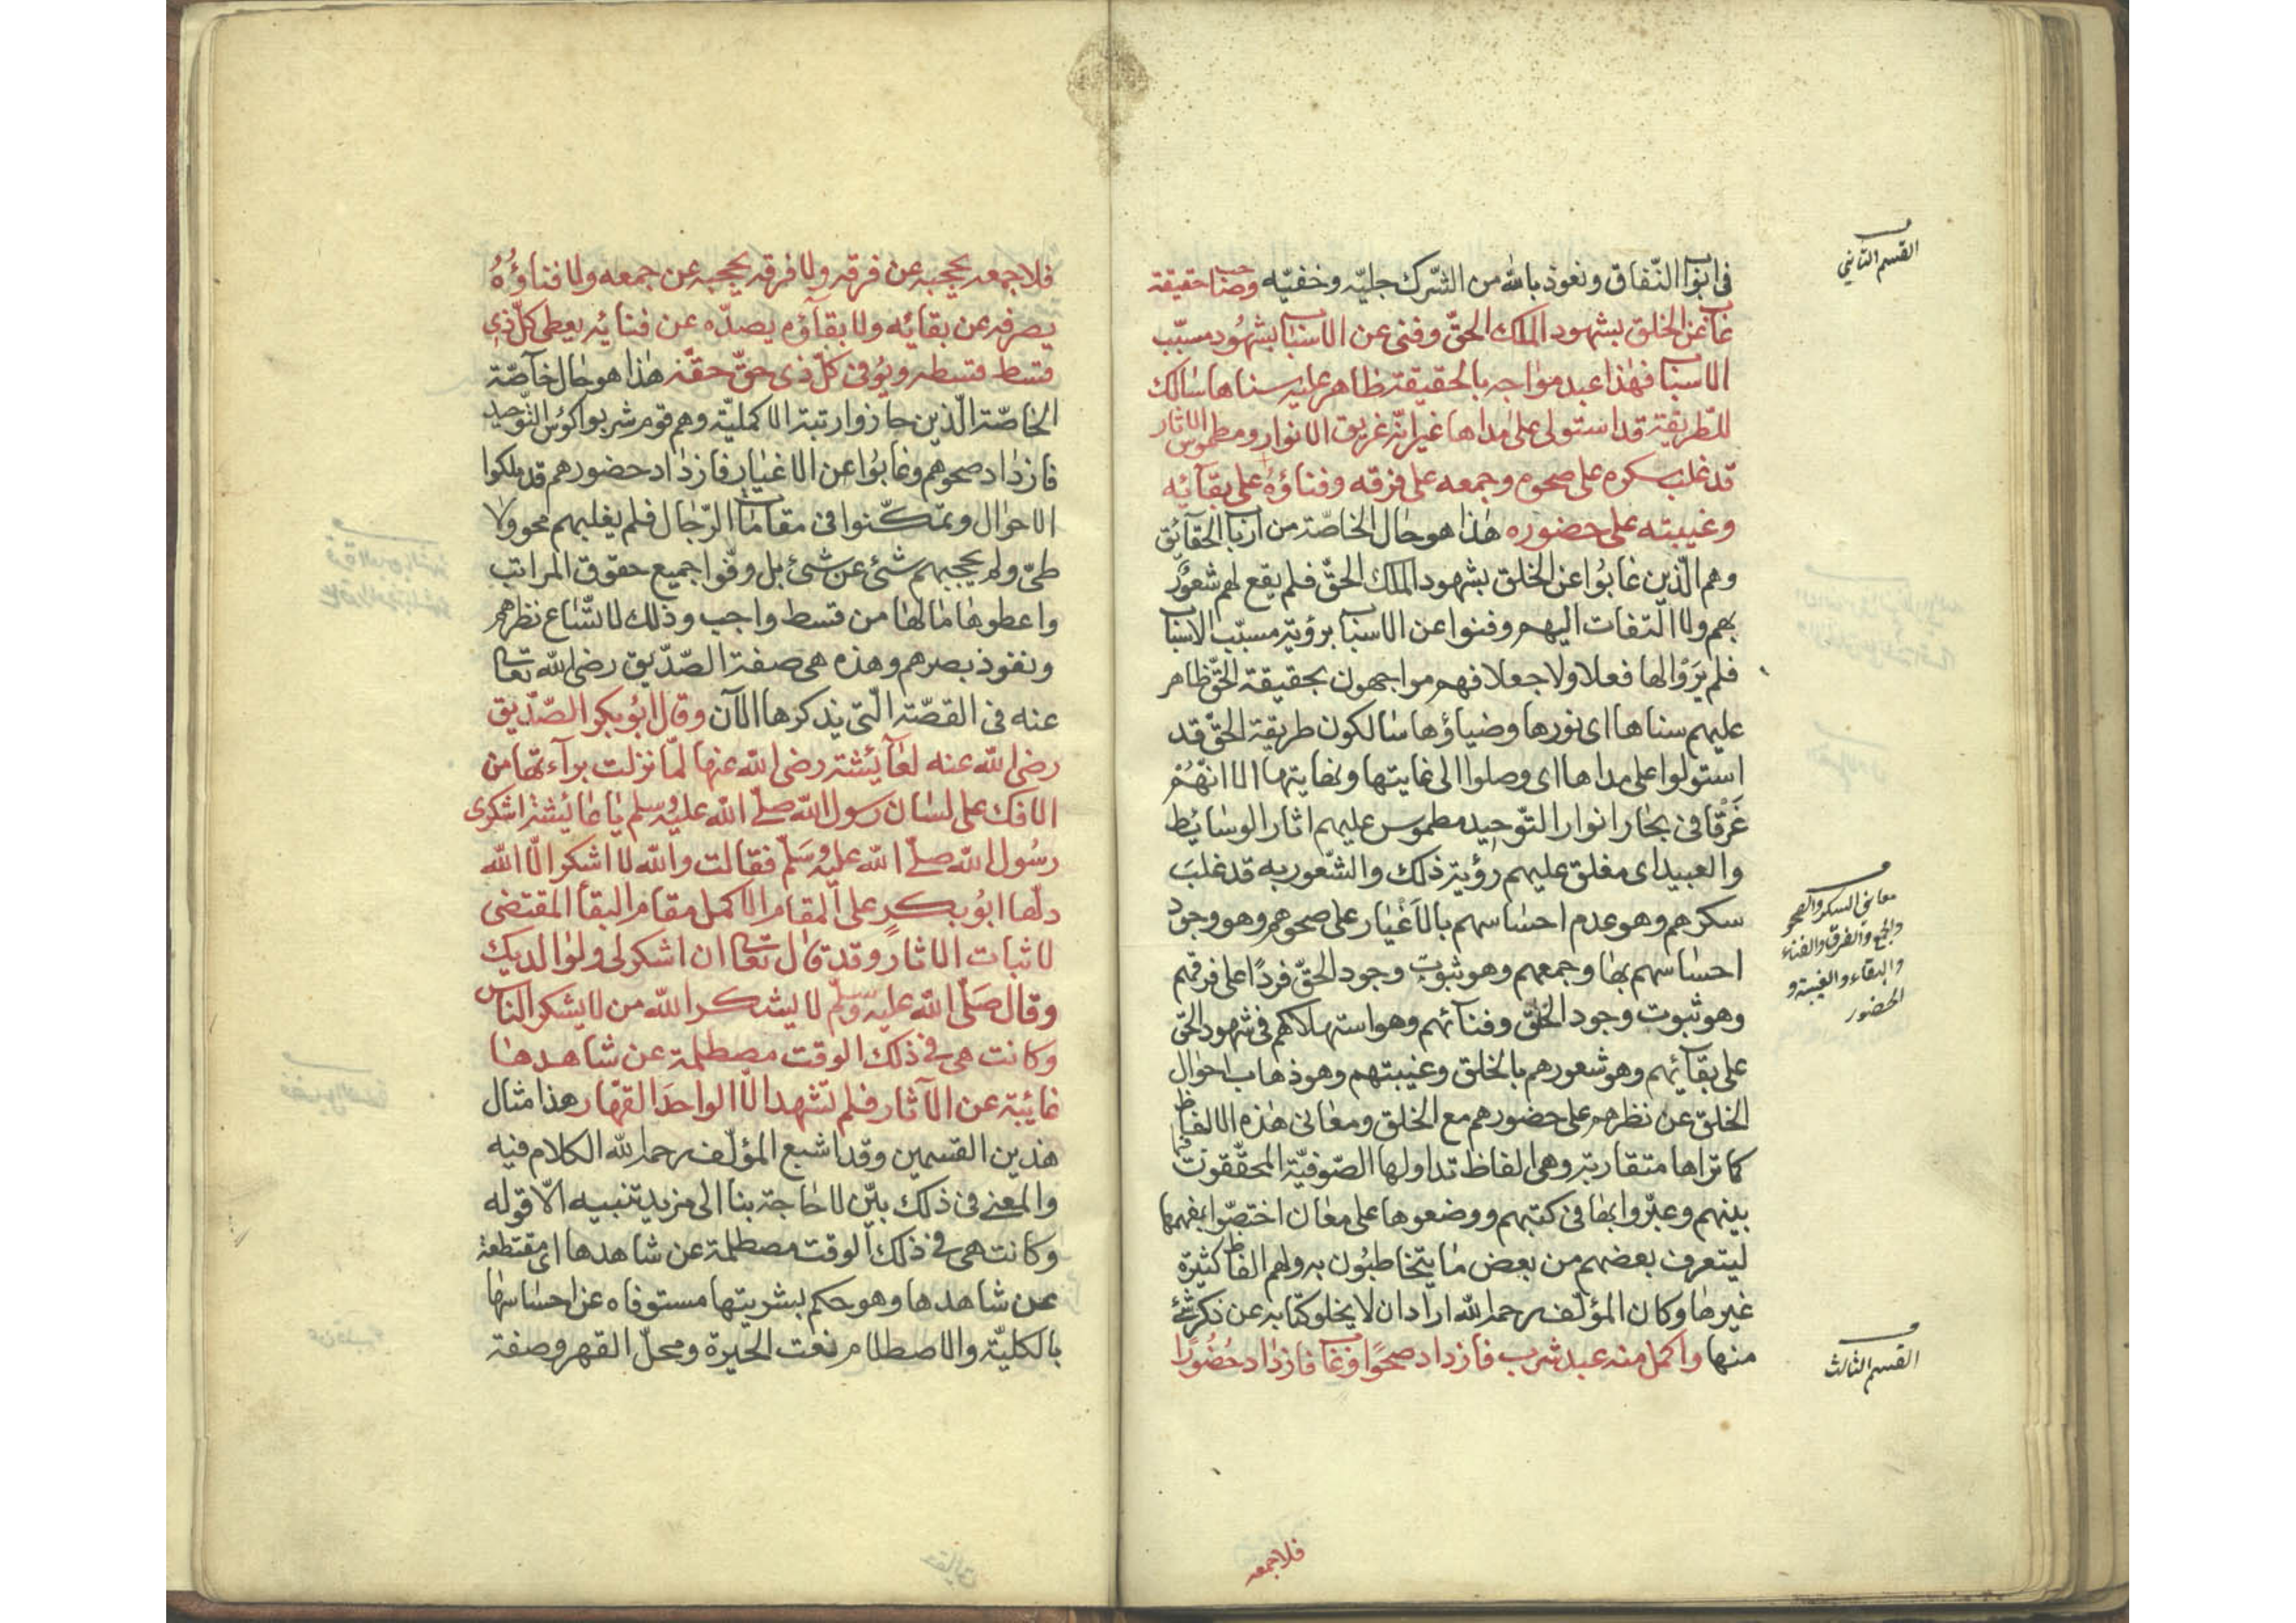 القسم الثاني
فى ابواب النّفاق ونعوذ بالله من الشّرك جليّه وخفيّه وصاحب حقيقة
غاب عن الخلق بشهود الملك الحقّ وفنى عن الاسباب بشهُود مسبّب
الاسباب فهذا عبد مواجه بالحقيقة ظاهر عليه سناها سالك
للطّريقة قد استولى على مداها غير انّه غريق الانوار ومطموس الاثار
قد غلب سكره على صحوه وجمعه على فرقه وفناؤهُ على بقآئه
وغيبته على حضوره هٰذا هو حال الخاصّة من ارباب الحقآئق
وهم الّذين غابُوا عن الخلق بشهود الملك الحقّ فلم يقع لهم شعُورٌ
بهم ولا التفات اليهم وفنوا عن الاسباب برؤية مسبّب الاسباب
فلم يَرَوْا لها فعلا ولا جعلا فهم مواجهون بحقيقة الحقّ ظاهر
عليهم سناها اى نورها وضياؤها سالكون طريقة الحقّ قد
استولوا على مداها اى وصلوا الى غايتها ونهايتها الا انّهُمْ
غَرْقَا فى بحار انوار التّوحيد مطموس عليهم اثار الوسائط
والعبيد اى مغلق عليهم رؤية ذلك والشّعور به قد غلبَ
سكرهم وهو عدم احساسهم بالاَغْيَار على صحوهم وهو وجود
معانى السكر والصحو
والجمع والفرق والفناء
والبقاء والغيبة و
الحضور
احساسهم بها وجمعهم وهو ثبوت وجود الحقّ فردًا على فرقهم
وهو ثبوت وجود الخلق وفنآئهم وهو استهلاكهم فى شهود الحق
على بقآئهم وهو شعورهم بالخلق وغيبتهم وهو ذهاب احوال
الخلق عن نظرهم على حضورهم مع الخلق ومعانى هٰذه الالفاظ
كما تراها متقاربة وهى الفاظ تداولها الصّوفيّة المحقّقون فيما
بينهم وعبّروا بها فى كتبهم ووضعوها على معان اختصّوا بفهمها
ليتعرف بعضهم من بعض ما يتخاطبُون به ولهم الفاظ كثيرة
غيرها وكان المؤلّف رحمه الله اراد ان لا يخلو كتابه عن ذكر شئ
القسم الثالث
منها واكمل منه عبد شرب فازداد صحوًا وغاب فازداد حُضُورًا
فلاجمعه
فلاجمعه يحجبه عن فرقه ولا فرقه يحجبه عن جمعه ولا فناؤُهُ
يصرفه عن بقائه ولا بقآؤه يصدّه عن فنائه يعطى كلّ ذى
قسط قسطه ويُوفى كلّ ذى حقّ حقّه هٰذا هو حال خآصّة
الخاصّة الّذين حازوا رتبة الاكمليّة وهم قوم شربوا كؤس التّوحيد
فازداد صحوهم وغابُوا عن الاغيار فازداد حضورهم قد ملكوا
الاحوال وتمكّنوا فى مقامات الرّجال فلم يغلبهم محو ولا
طىّ ولم يحجبهم شئ عن شئ بل وفّوا جميع حقوق المراتب
واعطوها ما لها من قسط واجب وذلك لاتّساع نظرهم
ونفوذ بصرهم وهذه هى صفة الصّدّيق رضى الله تعالى
عنه فى القصّة الّتى يذكرها الآن وقال ابُو بكر الصّدّيق
رضى الله عنه لعآئشة رضى الله عنها لمّا نزلت برآءتها من
الافك على لسان رسول الله صلى الله عليه وسلم يا عائشة اشكرى
رسُول الله صلى الله عليه وسَلّم فقالت والله لا اشكر الّا الله
دلّها ابُو بكر على المقام الاكمل مقام البقآ المقتضى
لاثبات الاثار وقد قال تعالى ان اشكر لى ولوالديك
وقال صَلّى الله عليه وسلم لا يشكر الله من لا يشكر الناس
وكانت هى فى ذلك الوقت مصطلمة عن شاهدها
غائبة عن الآثار فلم تشهد الّا الواحدَ القهّار هذا مثال
هذين القسمين وقد اشبع المؤلّف رحمه الله الكلام فيه
والمعنى فى ذلك بيّن لا حاجة بنا الى مزيد تنبيه الّا قوله
وكانت هى فى ذلك الوقت مصطلمة عن شاهدها اى مقتطعة
عن شاهدها وهو حكم بشريتها مستوفاه عن احساسها
بالكليّة والاصطلام نعت الحيرة ومحلّ القهر وصفة